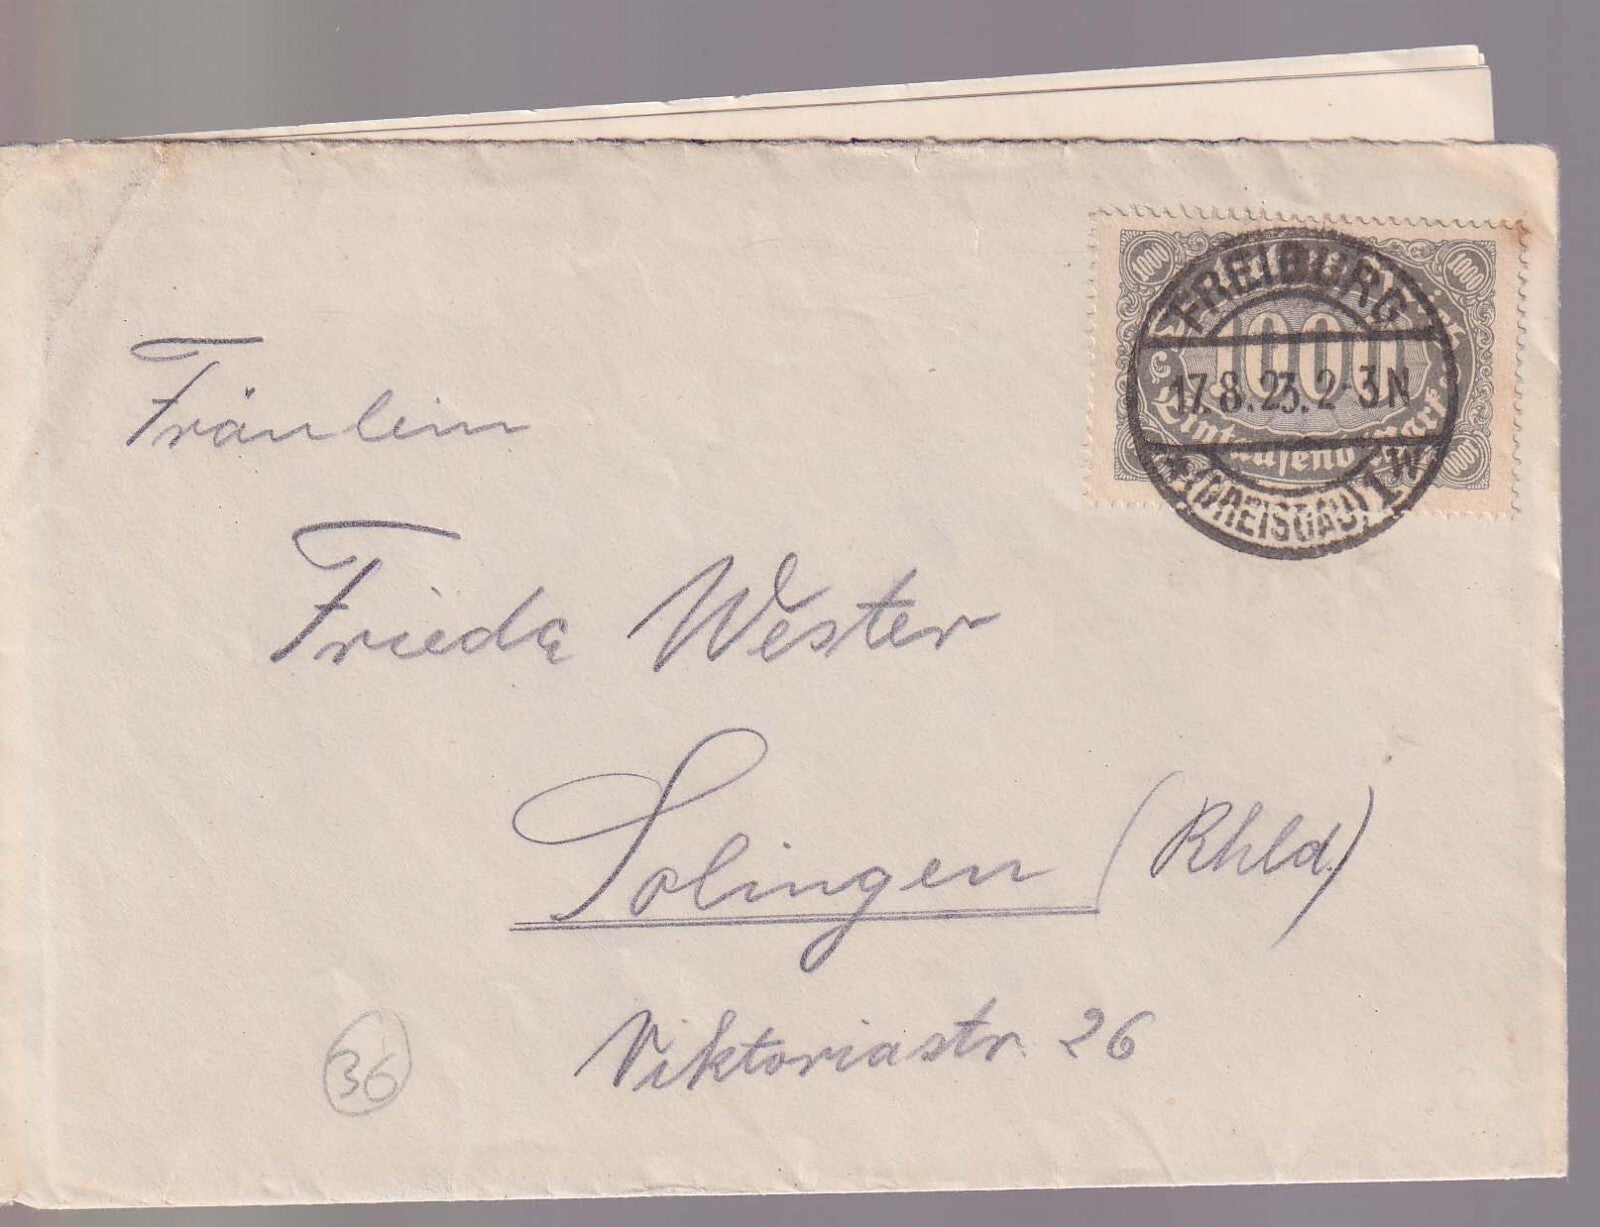 1000 1000
FREIBURG
1000
17.8.23.2-3N
Eintausend Mark
1000
* (BREISGAU) 1 W
Fräulein
Frieda Wester
Solingen (Rhld.)
Viktoriastr. 26
36